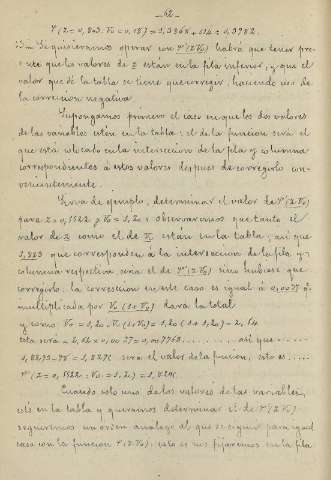 - 62 -
Si quisieramos operar con Ψ'(z V₀) habrá que tener pre-
sente que los valores de z están en la fila inferior, y que el
valor que dé la tabla se tiene que corregir, haciendo uso de
la corrección negativa.
Supongamos primero el caso en que los dos valores
de las variables estén en la tabla; el de la función será el
que está colocado en la intersección de la fila y columna
correspondientes á estos valores despues de corregirlo con-
venientemente.
Sirva de ejemplo, determinar el valor de Ψ'(z V₀)
para z = 0,1522 y V₀ = 1,20; observaremos que tanto el
valor de z como el de V₀ están en la tabla, así que
que corresponden á la intersección de la fila y
columna respectiva será el de Ψ'(z V₀) sino hubiese que
corregirlo. la corrección en este caso es igual á
multiplicada por V₀ (1+V₀) dará la total
y como V₀ = 1,20 . V₀ (1+V₀) = 1,20 (1+1,20) = 2,64
esta será así que
será el valor de la función, esto es
Ψ'(z = 0,1522 . V₀ = 1,2) =
Cuando solo uno de los valores de las variables,
esté en la tabla y queramos determinar el de Ψ'(z V₀)
seguiremos un orden analogo al que se siguió para igual
caso con la función Ψ(z V₀); esto es nos fijaremos en la fila